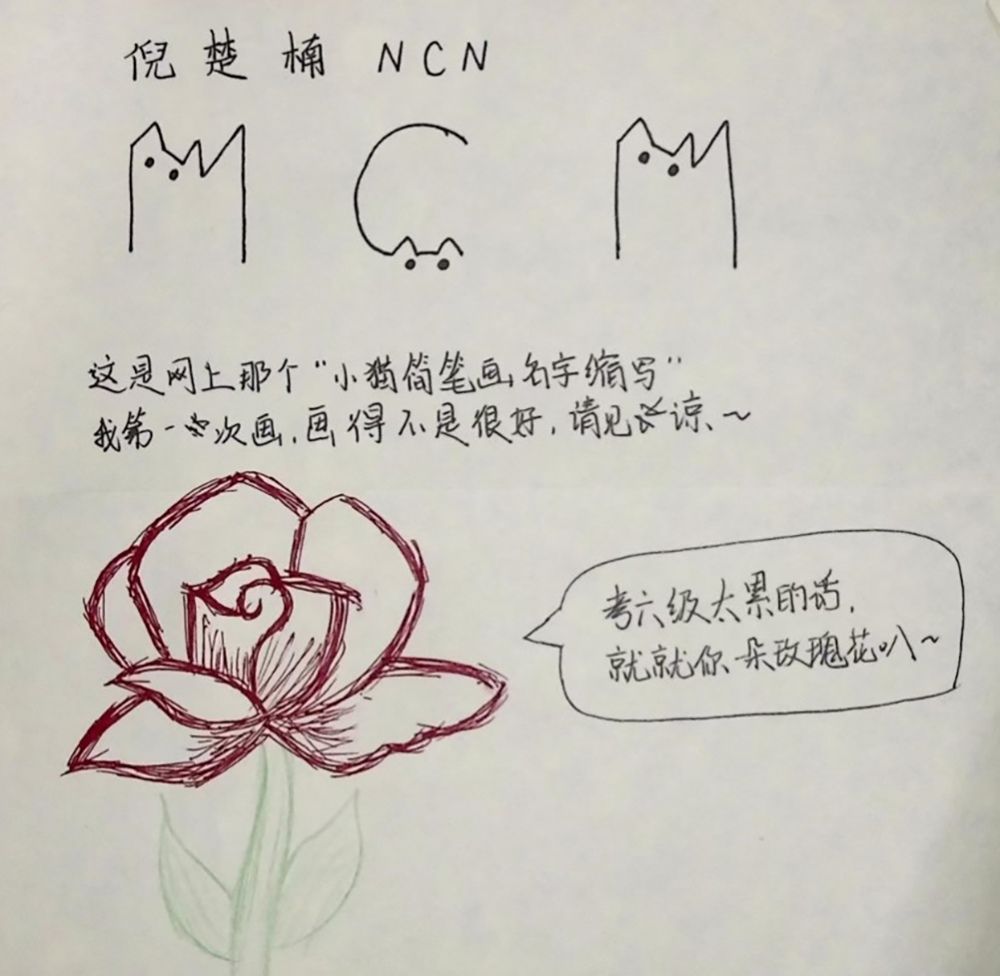 倪楚楠 NCN
这是网上那个“小猫简笔画名字缩写”
我第一次画,画得不是很好,请见谅、~
考六级太累的话,
就就你、朵玫瑰花叭~